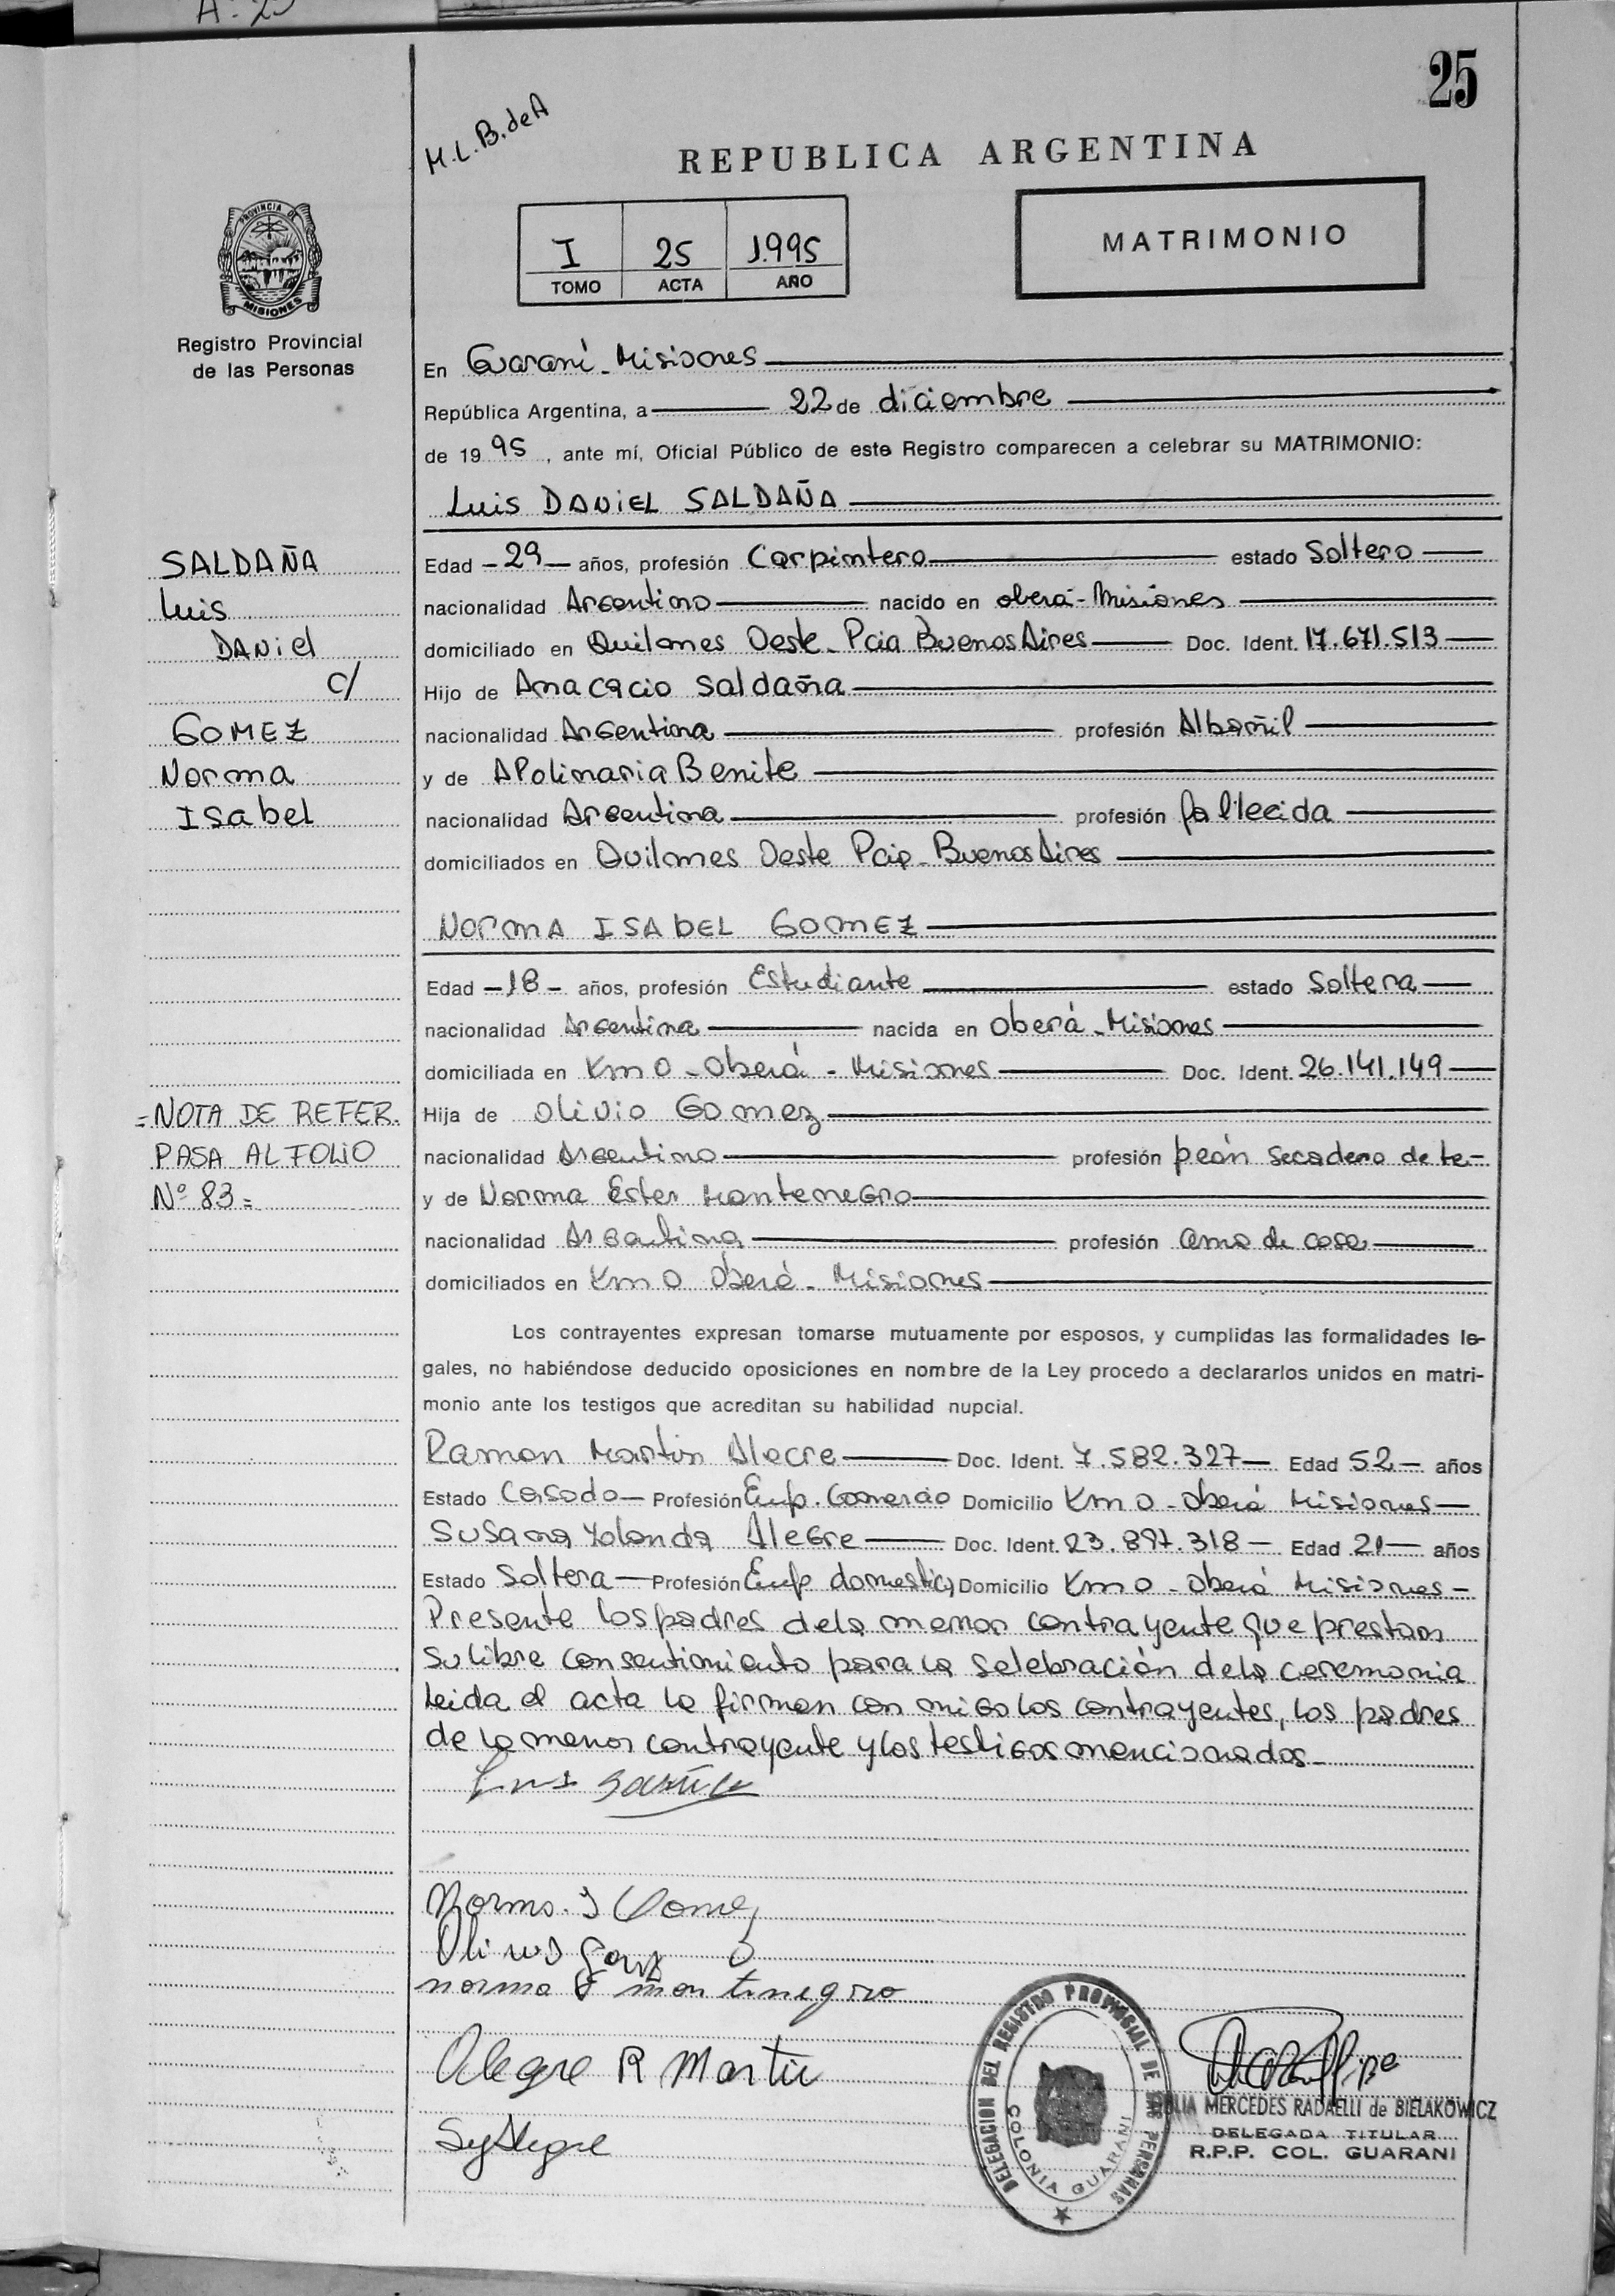 A: 25
25
M.L.B.deA
REPUBLICA ARGENTINA
PROVINCIA DE
MISIONES
I 25 1.995
TOMO ACTA AÑO
MATRIMONIO
Registro Provincial
de las Personas
En Guaraní - Misiones
República Argentina, a 22 de diciembre
de 19 95, ante mí, Oficial Público de este Registro comparecen a celebrar su MATRIMONIO:
Luis DANIEL SALDAÑA
SALDAÑA
Luis
DANiel
c/
GOMEZ
Norma
Isabel
Edad - 29 - años, profesión Carpintero estado Soltero
nacionalidad Argentino nacido en oberá - Misiones
domiciliado en Quilmes Oeste - Pcia Buenos Aires Doc. Ident. 17.671.513
Hijo de Anacacio Saldaña
nacionalidad Argentina profesión Albañil
y de APolinaria Benite
nacionalidad Argentina profesión fallecida
domiciliados en Quilmes Oeste Pcia - Buenos Aires
NORMA ISABEL GOMEZ
Edad - 18 - años, profesión Estudiante estado Soltera
nacionalidad Argentina nacida en Oberá - Misiones
domiciliada en Km 0 - Oberá - Misiones Doc. Ident. 26.141.149
Hija de Olivio Gomez
nacionalidad Argentino profesión peón secadero de te -
y de Norma Ester Montenegro
nacionalidad Argentina profesión ama de casa
domiciliados en Km 0 Oberá - Misiones
= NOTA DE REFER.
PASA AL FOLIO
Nº 83 =
Los contrayentes expresan tomarse mutuamente por esposos, y cumplidas las formalidades le-
gales, no habiéndose deducido oposiciones en nombre de la Ley procedo a declararlos unidos en matri-
monio ante los testigos que acreditan su habilidad nupcial.
Ramon Martin Alegre Doc. Ident. 7.582.327 - Edad 52 - años
Estado Casado - Profesión Emp. Comercio Domicilio Km 0 - Oberá Misiones -
Susana Yolanda Alegre Doc. Ident. 23.897.318 - Edad 21 - años
Estado Soltera - Profesión Emp domestica Domicilio Km 0 - Oberá Misiones -
Presente los padres dela menor contrayente que prestan
su libre consentimiento para la selebración dela ceremonia
leida el acta la firman con migo los contrayentes, los padres
de la menor contrayente y los testigos mencionados -
Norma. I Gomez
norma E montenegro
Alegre R Martin
SyAlegre
DELEGACION DEL REGISTRO PROVINCIAL DE LAS PERSONAS
COLONIA GUARANI
MERCEDES RADAELLI de BIELAKOWICZ
DELEGADA TITULAR
R.P.P. COL. GUARANI